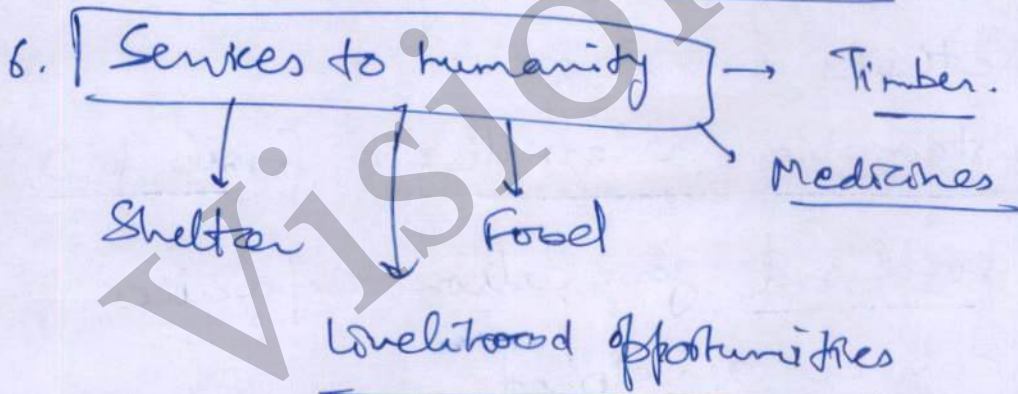 6. Services to humanity → Timber.
Medicines
Shelter Food
Livelihood opportunities
Vision